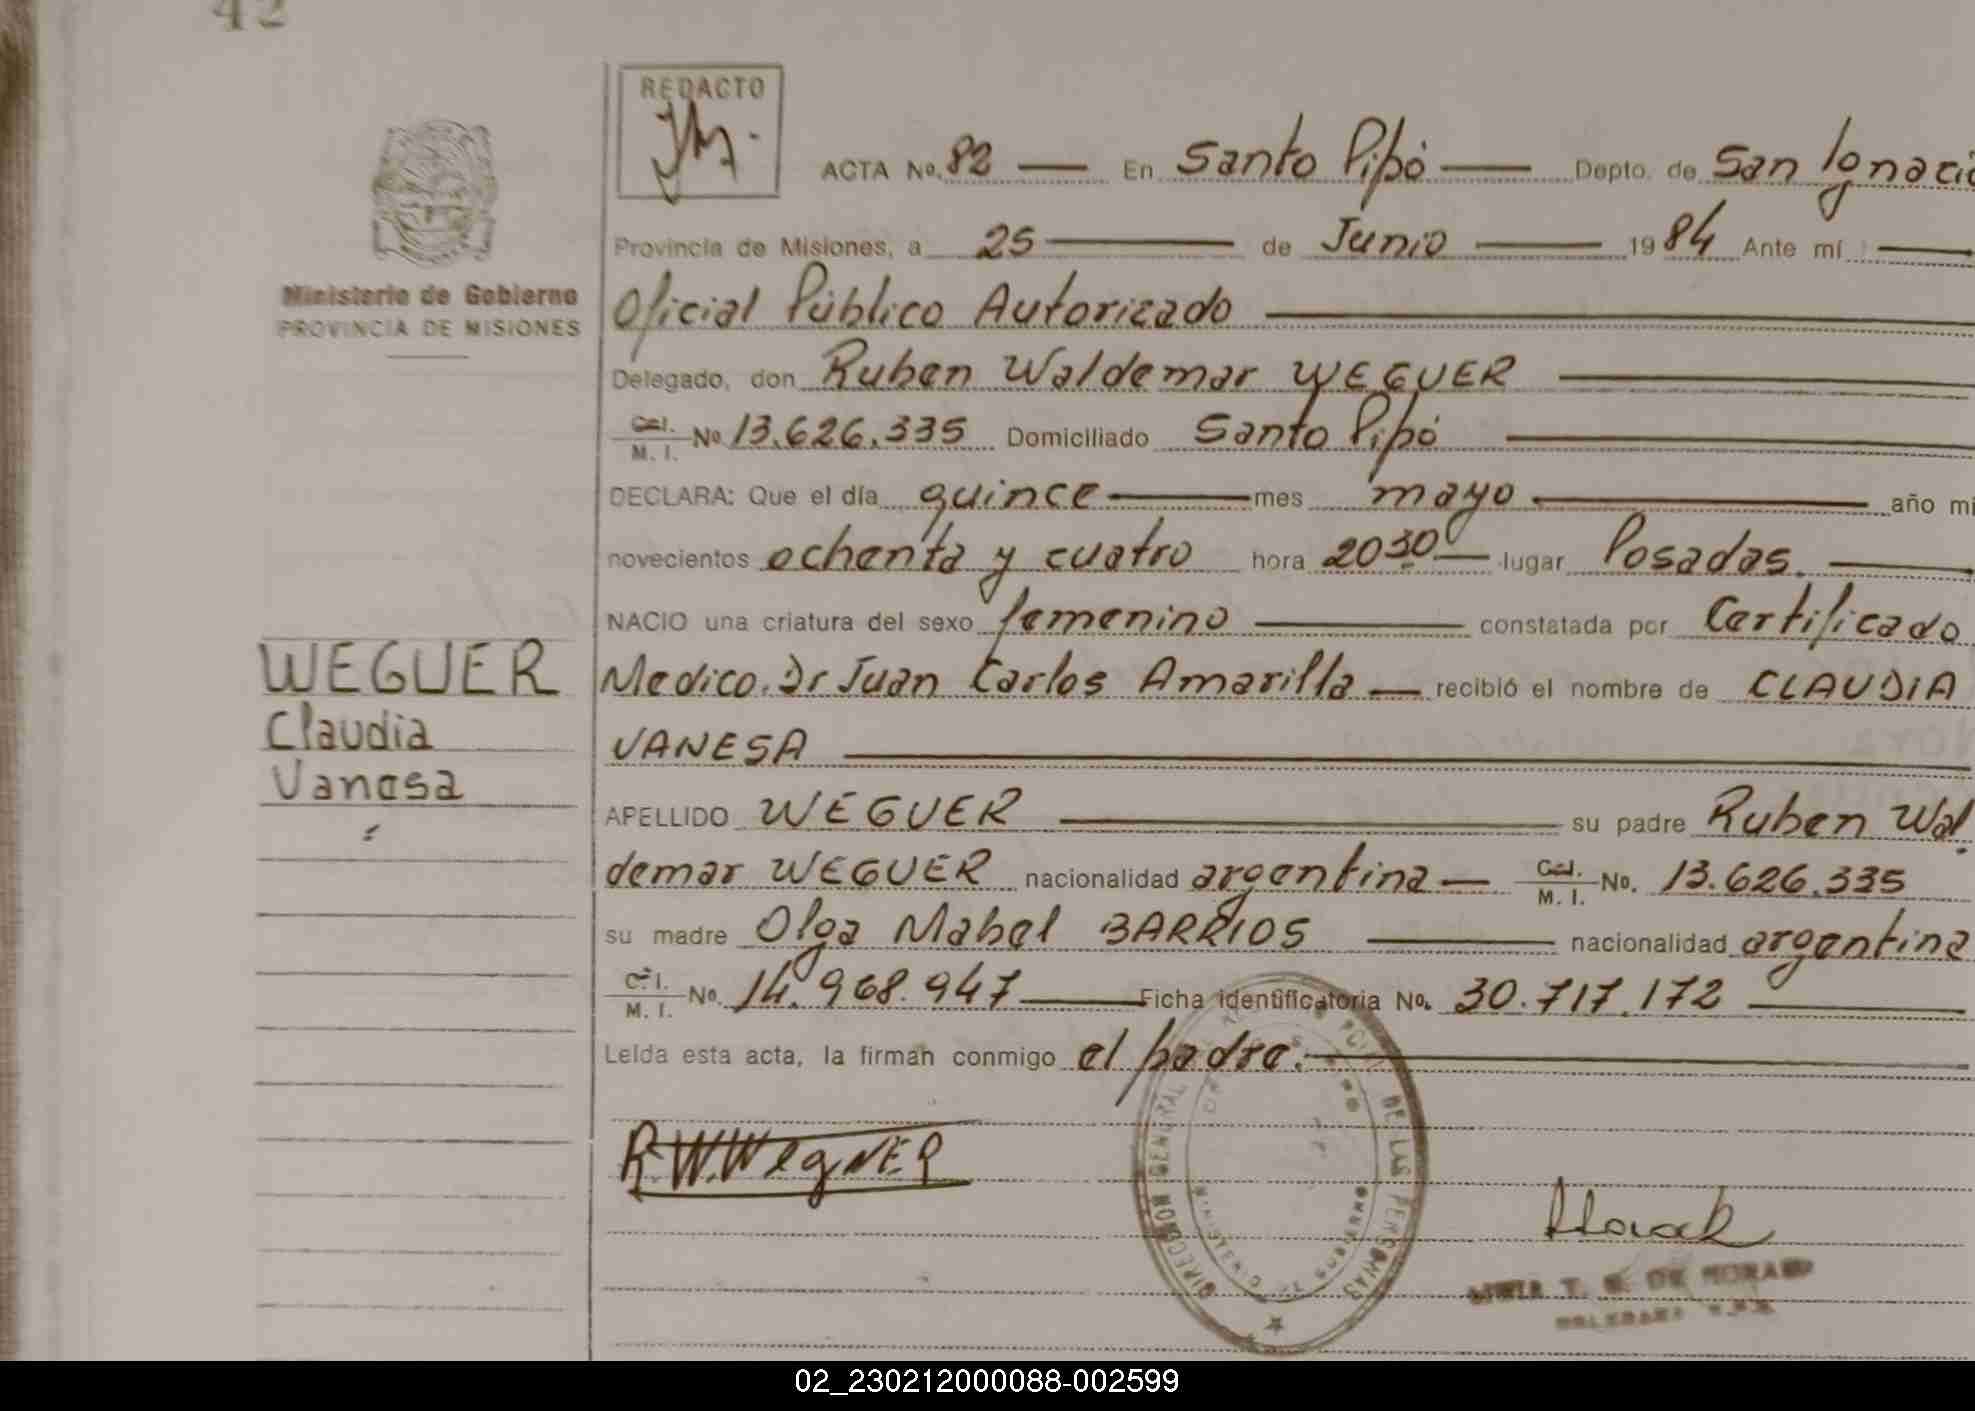 42
REDACTO
ACTA No. 82 En Santo Pipó Depto. de San Ignacio
Provincia de Misiones, a 25 de Junio 1984 Ante mí
Oficial Público Autorizado
Delegado, don Ruben Waldemar WEGUER
M. I. No 13.626.335 Domiciliado Santo Pipó
DECLARA: Que el día quince mes mayo año mi
novecientos ochenta y cuatro hora 20 30 lugar Posadas.
NACIO una criatura del sexo femenino constatada por Certificado
Medico. Dr Juan Carlos Amarilla recibió el nombre de CLAUDIA
VANESA
APELLIDO WEGUER su padre Ruben Wal
demar WEGUER nacionalidad argentina M. I. No. 13.626.335
su madre Olga Mabel BARRIOS nacionalidad argentina
C. I. M. I. No. 14.968.947 Ficha identificatoria No. 30.717.172
Leída esta acta, la firman conmigo el padre.
R.W.WegNER
Ministerio de Gobierno
PROVINCIA DE MISIONES
WEGUER
Claudia
Vanesa
DIRECCION GENERAL DE LAS PERSONAS
02_230212000088-002599